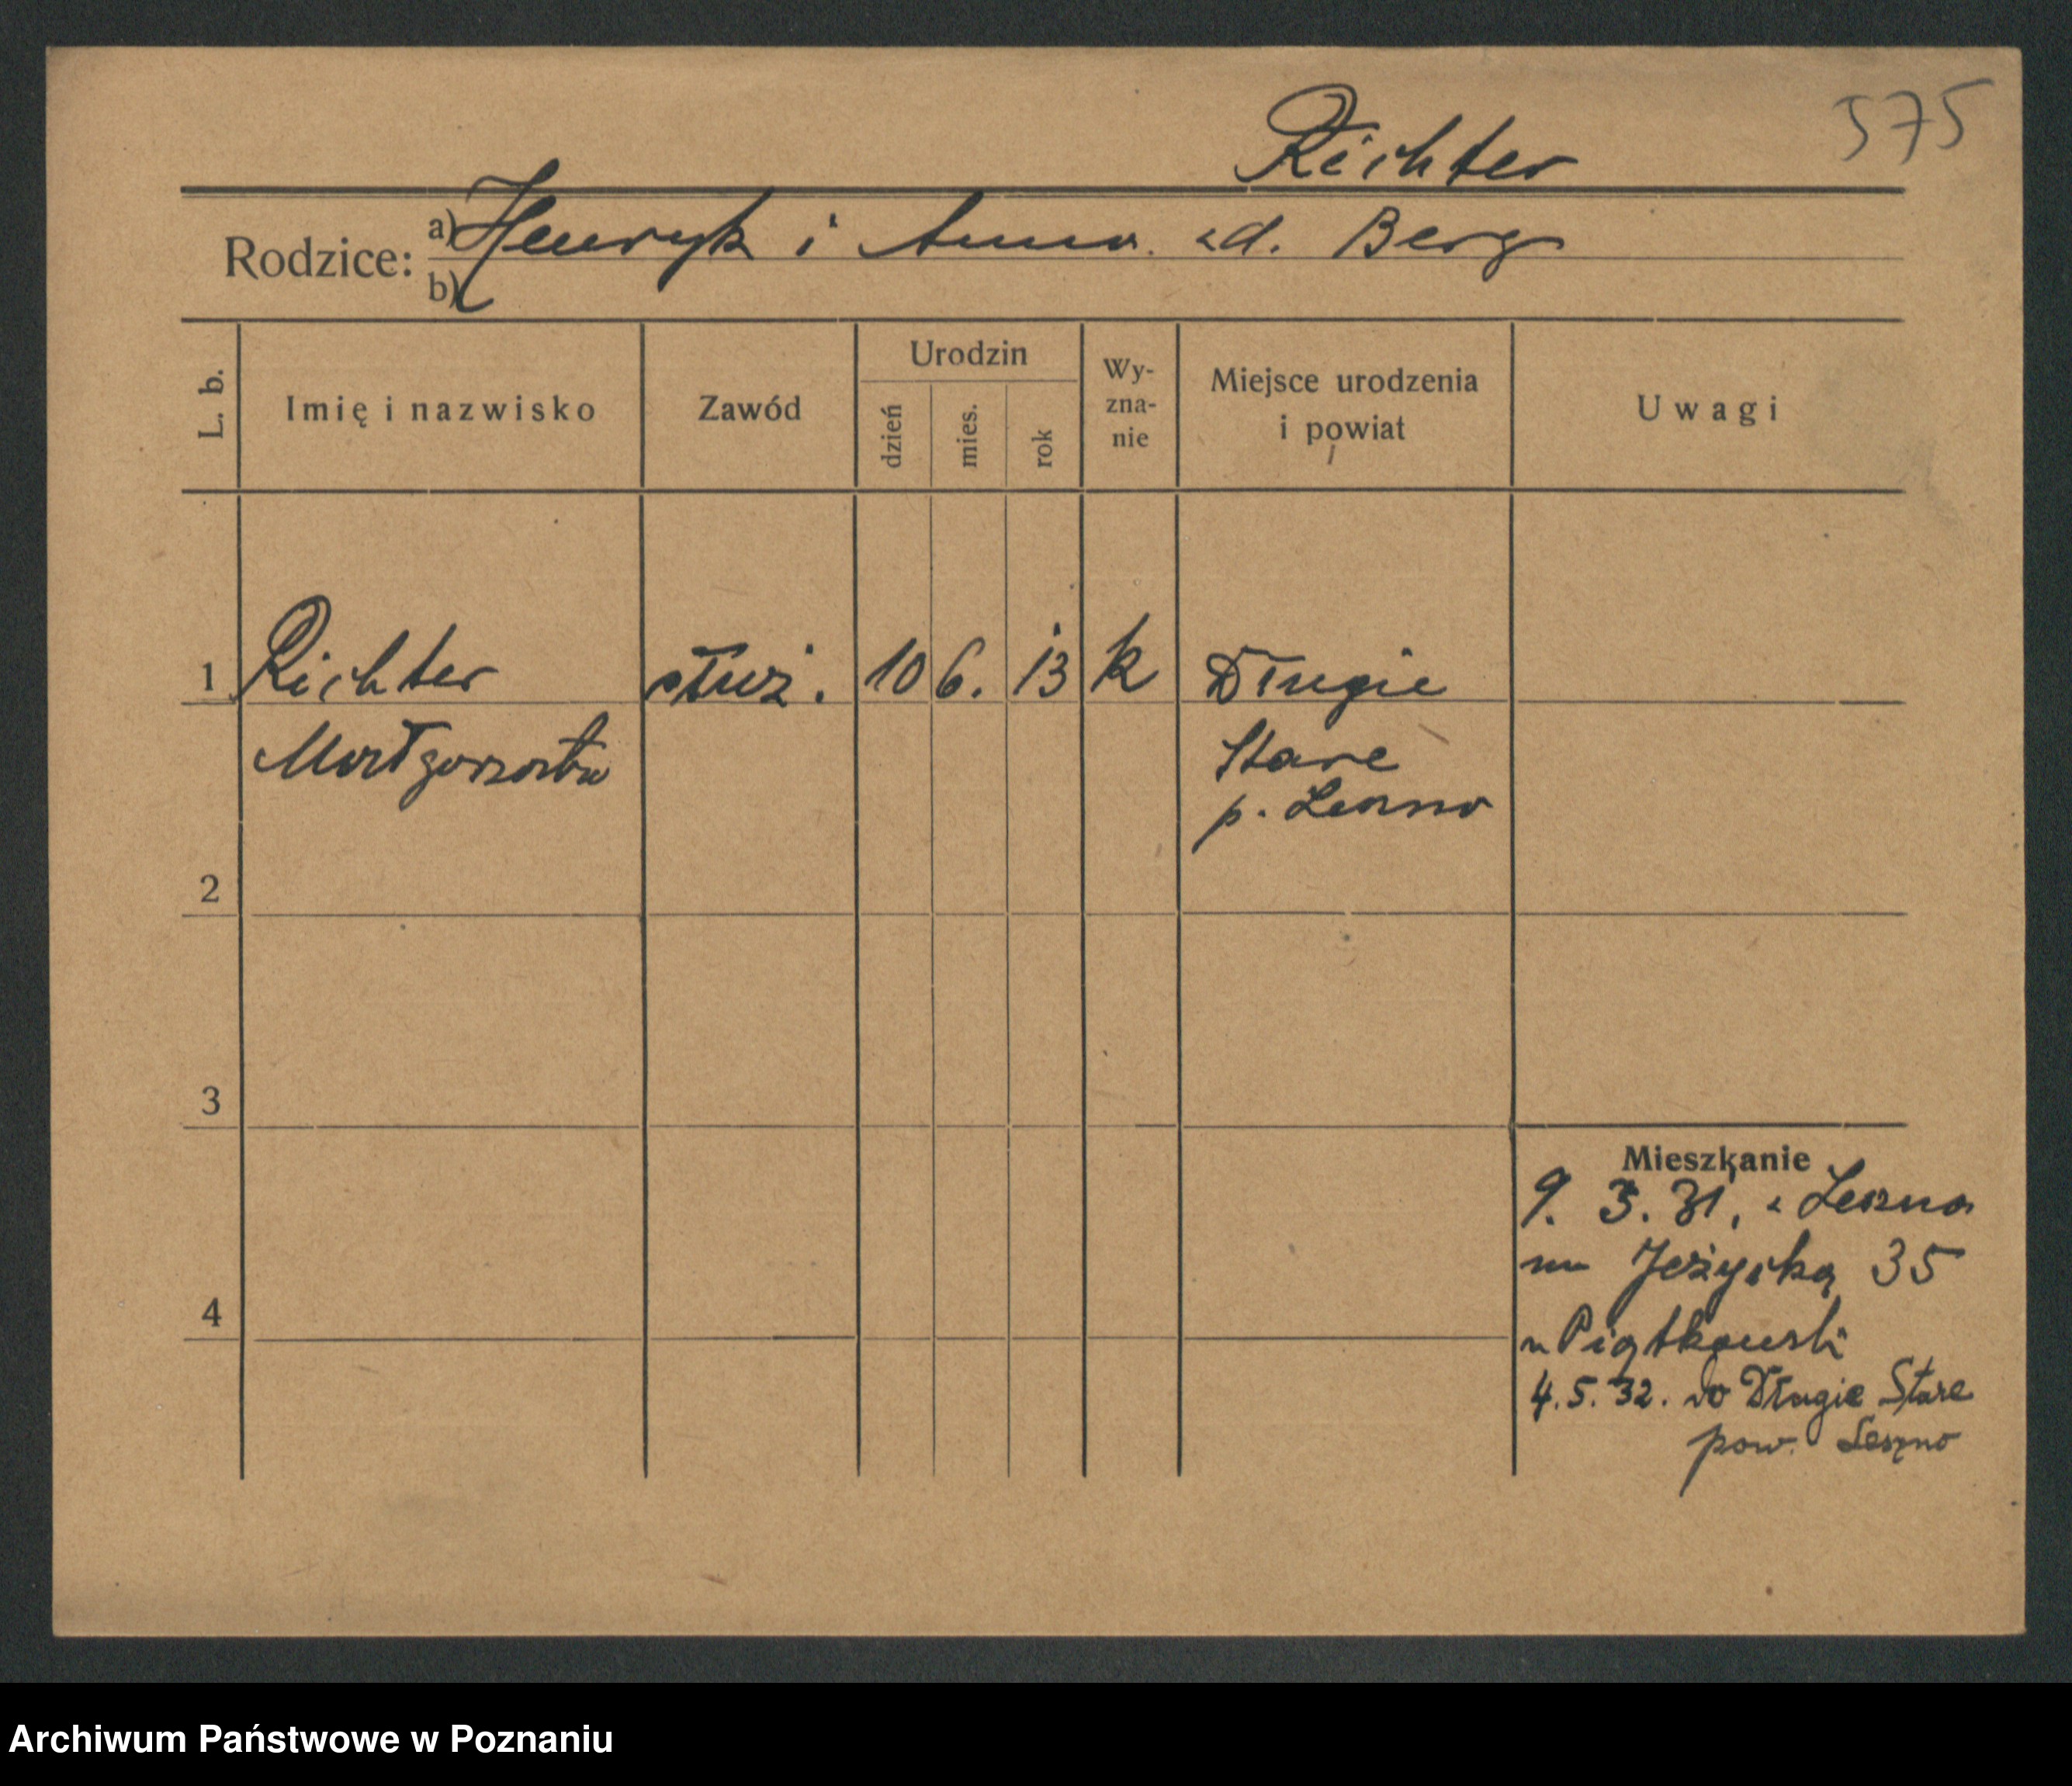 575
Richter
Rodzice: a) Henryk i Anna zd. Berg
b)
L. b.
Imię i nazwisko
Zawód
Urodzin
dzień
mies.
rok
Wy-
zna-
nie
Miejsce urodzenia
i powiat
Uwagi
1 Richter służ. 10 6. 13 k Długie
Małgorzata Stare
p. Leszno
2
3
4
Mieszkanie
9. 3. 31. z Leszna
na Jeżycką 35
u Piątkowski
4.5.32. do Długie Stare
pow. Leszno
Archiwum Państwowe w Poznaniu